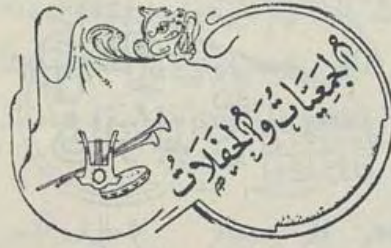 الجَمعيَّات وَالحَفَلَاتُ